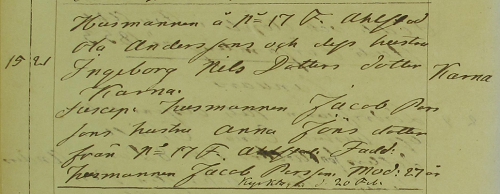 Husmannen å No 17 F. Ahlstad
Ola Anderssons och dess hustru
15 21 Ingeborg Nils Dotters dotter Karna
Karna.
Suscep: husmannen Jacob Pers
sons hustru Anna Jöns dotter
från No 17 F. Ahlstad. Fadd:
husmannen Jacob Persson. Mod: 27 år
Kyrktog. d. 20 Feb.